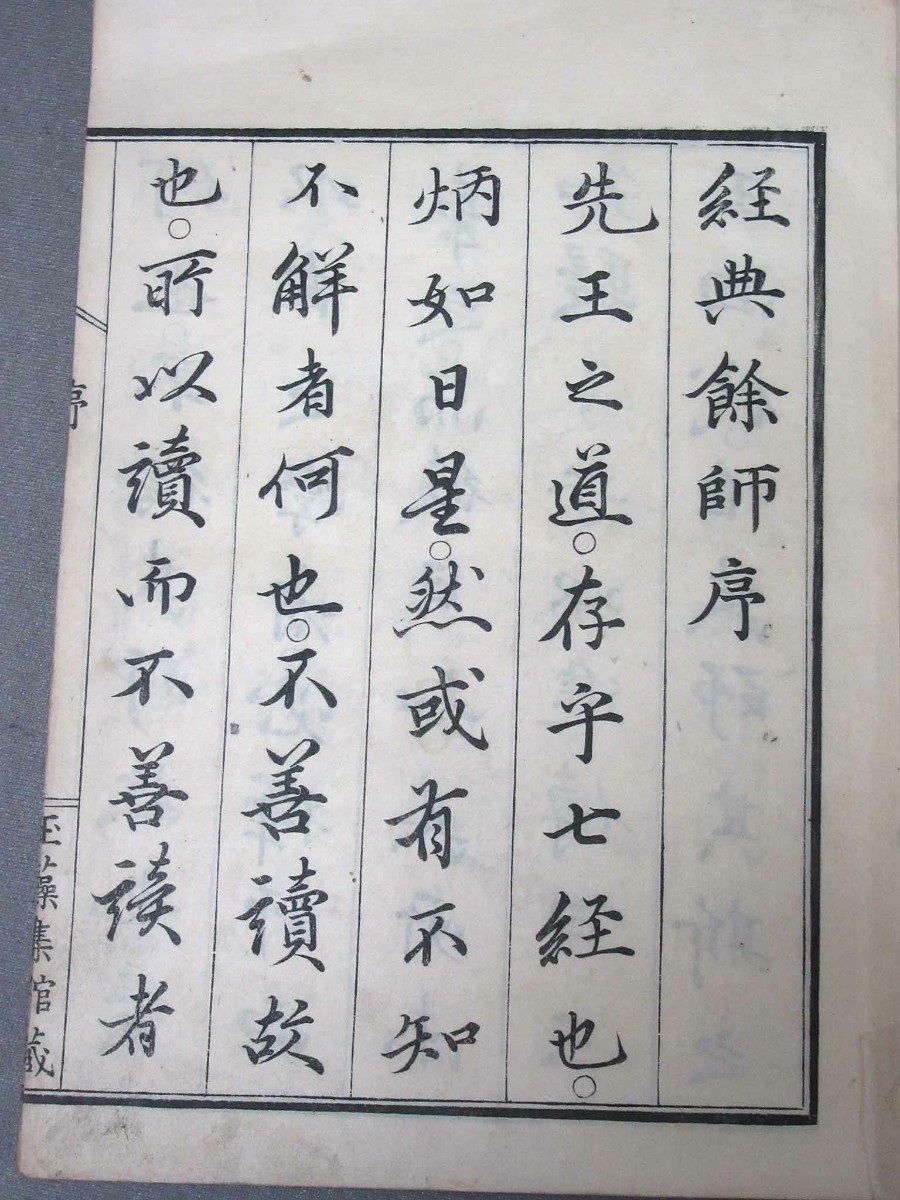 経典餘師序
先王之道。存乎七経也。
炳如日星。然或有不知
不解者何也。不善讀故
也。所以讀而不善読者
序
玉藻集館蔵